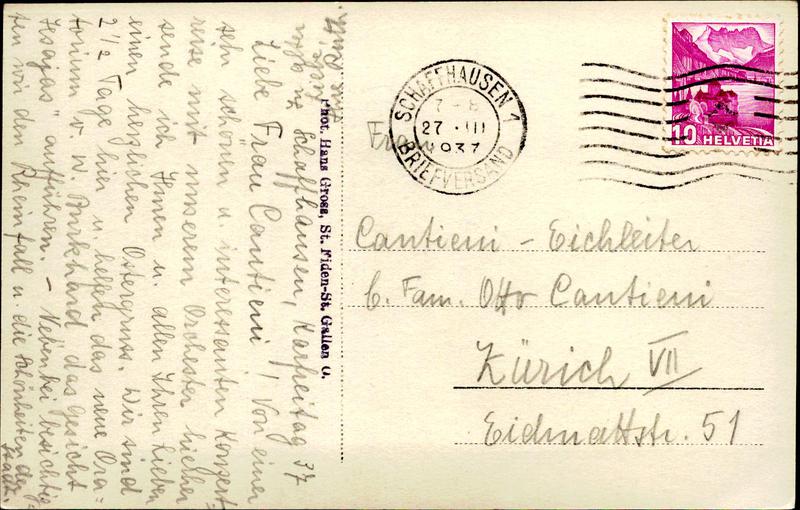 Schaffhausen, Karfreitag 37
Liebe Frau Cantieni, Von einer
sehr schönen u. interessanten Konzert-
reise mit unserem Orchester hieher
sende ich Ihnen u. allen Ihren Lieben
einen herzlichen Ostergruss. Wir sind
2 1/2 Tage hier u. helfen das neue Ora-
torium v. W. Burkhard „das Gesicht
Jesajas" aufführen. – Nebenbei besichtig-
ten wir den Rheinfall u. die Schönheiten der
Stadt.
Phot. Hans Gross, St. Fiden-St. Gallen O.
SCHAFFHAUSEN 1
7-8
27.III
1937
BRIEFVERSAND
10 HELVETIA
Frau
Cantieni – Eichleiter
b. Fam. Otto Cantieni
Zürich VII
Eidmattstr. 51